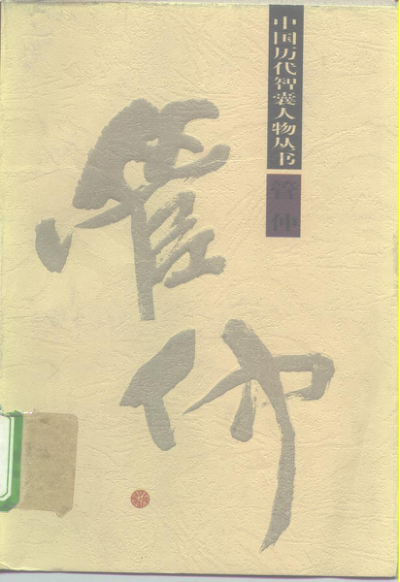 中国历代智囊人物丛书
管仲
管仲